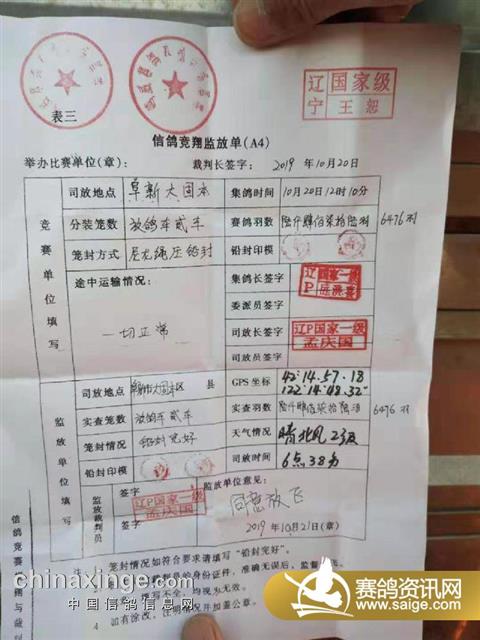 表三
辽 国家级
宁 王恕
信鸽竞翔监放单(A4)
举办比赛单位(章): 裁判长签字: 2019年10月20日
竞赛单位填写
司放地点 阜新大固本 集鸽时间 10月20日12时10分
分装笼数 放鸽车贰车 赛鸽羽数 陆仟肆佰柒拾陆羽 6476羽
笼封方式 尼龙绳压铅封 铅封印模
途中运输情况: 一切正常
集鸽长签字 辽P国家一级
委派员签字
司放长签字 辽P国家一级 孟庆国
司放员签字
监放单位填写
司放地点 大固本区 县 GPS坐标 42°.14.57.18
122°.14.48.32"
实查笼数 放鸽车贰车 实查羽数 陆仟肆佰柒拾陆羽 6476羽
笼封情况 铅封完好 天气情况 晴北风2级
铅封印模 司放时间 6点38分
监放裁判员
签字 辽P国家一级 孟庆国
签字
监放单位意见:
同意放飞
2019年10月21日(章)
注: 笼封情况如符合要求请填写"铅封完好"。
身份证件,准确无误后,监督
不全,均视为无效。
如有涂改,注明情况并加盖公章。
信鸽竞赛规则与裁判
chinaxinge.com
中国信鸽信息网
赛鸽资讯网
www.saige.com